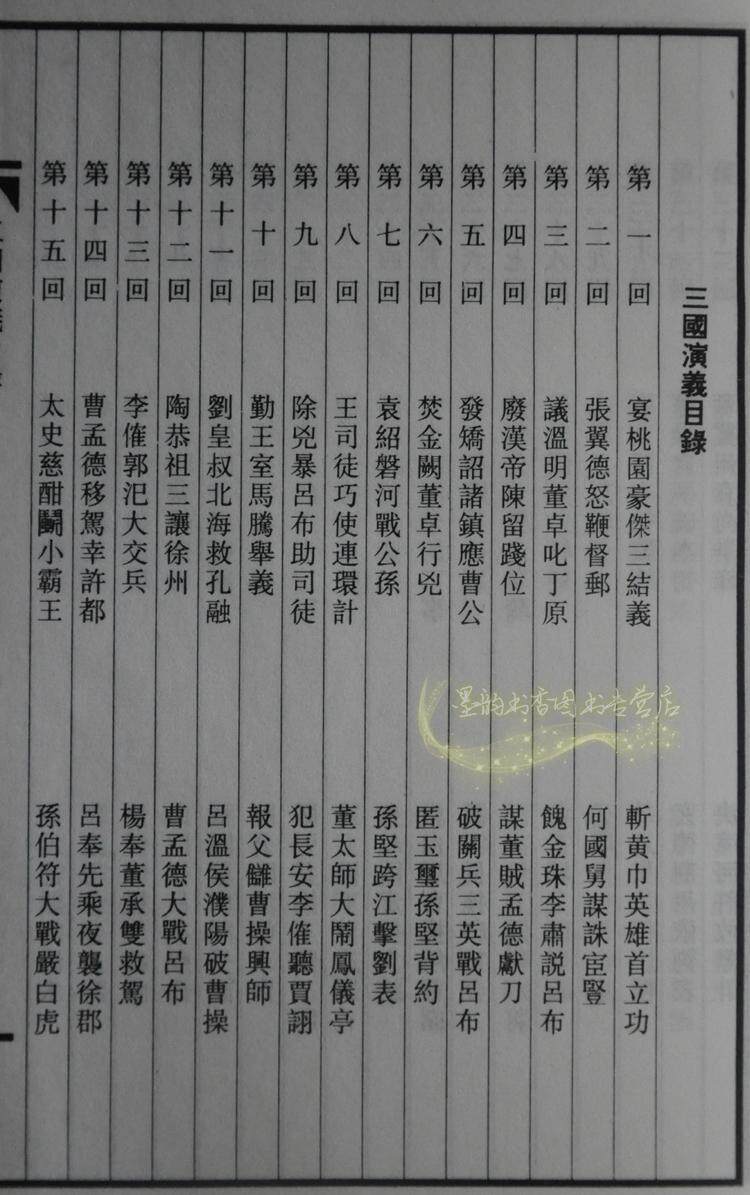 三國演義目錄
第一回 宴桃園豪傑三結義 斬黃巾英雄首立功
第二回 張翼德怒鞭督郵 何國舅謀誅宦豎
第三回 議溫明董卓叱丁原 餽金珠李肅説呂布
第四回 廢漢帝陳留踐位 謀董賊孟德獻刀
第五回 發矯詔諸鎮應曹公 破關兵三英戰呂布
第六回 焚金闕董卓行兇 匿玉璽孫堅背約
第七回 袁紹磐河戰公孫 孫堅跨江擊劉表
第八回 王司徒巧使連環計 董太師大鬧鳳儀亭
第九回 除兇暴呂布助司徒 犯長安李傕聽賈詡
第十回 勤王室馬騰舉義 報父讎曹操興師
第十一回 劉皇叔北海救孔融 呂溫侯濮陽破曹操
第十二回 陶恭祖三讓徐州 曹孟德大戰呂布
第十三回 李傕郭汜大交兵 楊奉董承雙救駕
第十四回 曹孟德移駕幸許都 呂奉先乘夜襲徐郡
第十五回 太史慈酣鬭小霸王 孫伯符大戰嚴白虎
墨韵书香图书专营店